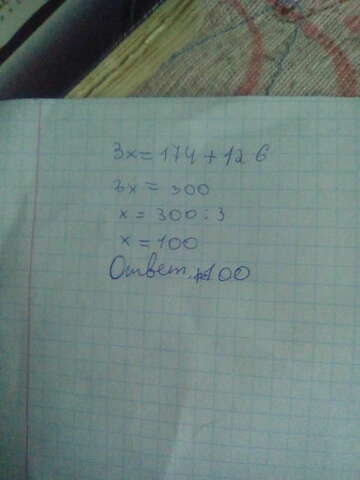 3x = 174 + 126
3x = 300
x = 300 : 3
x = 100
Ответ. 100